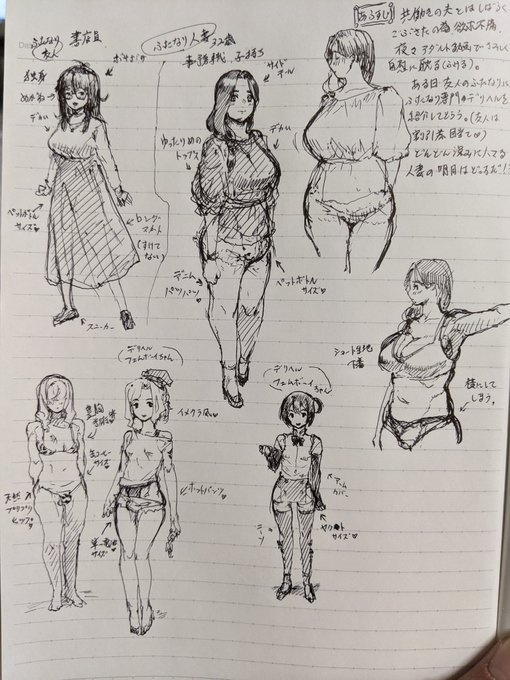 あらすじ
共働きの夫とはしばらく
ごぶさたの為 欲求不満。
夜々アダルト動画でさみしく
自慰に耽る(ふける)。
ある日、友人のふたなりに
ふたなり専門のデリヘルを
紹介してもらう。(友人は
割引券目当て
どんどん深みに
人妻の明日はどっちだ!?
ふたなり
友人
書店員
独身
めがね
デカい
ペットボトル
サイズ♥
ロング
スカート
(すけて
ない)
スニーカー
ふたなり人妻 32歳
事務職 子持ち
サイド
ゆったりめの
トップス
デカい
デニム
パツパツ
ペットボトル
サイズ♥
ショート生地
下着
横にして
しまう。
デリヘル
フェムボーイちゃん
イメクラ風♥
缶コーヒーサイズ
天然
プリプリ
ヒップ♥
ホットパンツ
単一電池
サイズ♥
デリヘル
フェムボーイちゃん
アーム
カバー
ヤクルト
サイズ♥